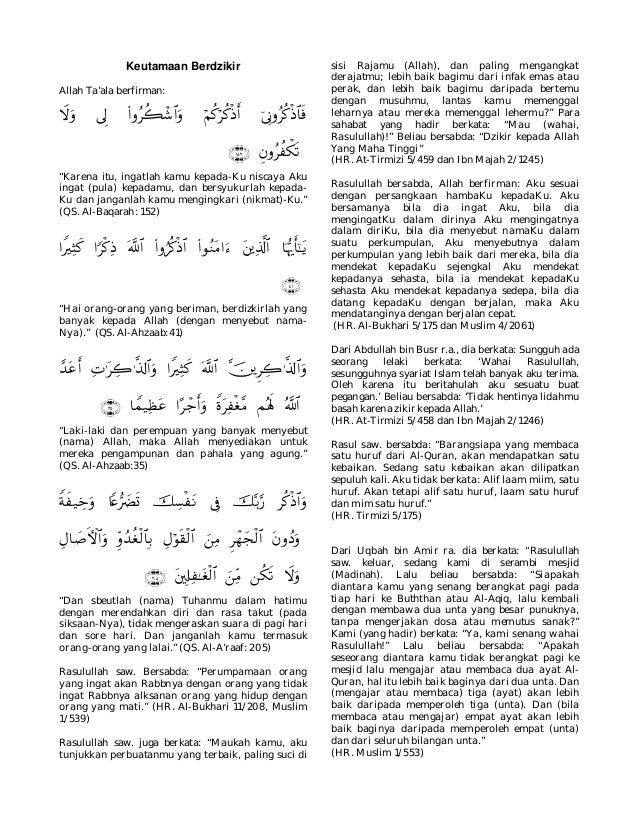 Keutamaan Berdzikir
Allah Ta'ala berfirman:
فَٱذۡكُرُونِيٓ أَذۡكُرۡكُمۡ وَٱشۡكُرُواْ لِي وَلَا
تَكۡفُرُونِ ١٥٢
“Karena itu, ingatlah kamu kepada-Ku niscaya Aku
ingat (pula) kepadamu, dan bersyukurlah kepada-
Ku dan janganlah kamu mengingkari (nikmat)-Ku.”
(QS. Al-Baqarah: 152)
يَٰٓأَيُّهَا ٱلَّذِينَ ءَامَنُواْ ٱذۡكُرُواْ ٱللَّهَ ذِكۡرٗا كَثِيرٗا
٤١
“Hai orang-orang yang beriman, berdzikirlah yang
banyak kepada Allah (dengan menyebut nama-
Nya).” (QS. Al-Ahzaab:41)
وَٱلذَّٰكِرِينَ ٱللَّهَ كَثِيرٗا وَٱلذَّٰكِرَٰتِ أَعَدَّ
ٱللَّهُ لَهُم مَّغۡفِرَةٗ وَأَجۡرًا عَظِيمٗا ٣٥
“Laki-laki dan perempuan yang banyak menyebut
(nama) Allah, maka Allah menyediakan untuk
mereka pengampunan dan pahala yang agung.”
(QS. Al-Ahzaab:35)
وَٱذۡكُر رَّبَّكَ فِي نَفۡسِكَ تَضَرُّعٗا وَخِيفَةٗ
وَدُونَ ٱلۡجَهۡرِ مِنَ ٱلۡقَوۡلِ بِٱلۡغُدُوِّ وَٱلۡأٓصَالِ
وَلَا تَكُن مِّنَ ٱلۡغَٰفِلِينَ ٢٠٥
“Dan sbeutlah (nama) Tuhanmu dalam hatimu
dengan merendahkan diri dan rasa takut (pada
siksaan-Nya), tidak mengeraskan suara di pagi hari
dan sore hari. Dan janganlah kamu termasuk
orang-orang yang lalai.” (QS. Al-A'raaf: 205)
Rasulullah saw. Bersabda: “Perumpamaan orang
yang ingat akan Rabbnya dengan orang yang tidak
ingat Rabbnya alksanan orang yang hidup dengan
orang yang mati.” (HR. Al-Bukhari 11/208, Muslim
1/539)
Rasulullah saw. juga berkata: “Maukah kamu, aku
tunjukkan perbuatanmu yang terbaik, paling suci di
sisi Rajamu (Allah), dan paling mengangkat
derajatmu; lebih baik bagimu dari infak emas atau
perak, dan lebih baik bagimu daripada bertemu
dengan musuhmu, lantas kamu memenggal
leharnya atau mereka memenggal lehermu?” Para
sahabat yang hadir berkata: “Mau (wahai,
Rasulullah)!” Beliau bersabda: “Dzikir kepada Allah
Yang Maha Tinggi”
(HR. At-Tirmizi 5/459 dan Ibn Majah 2/1245)
Rasulullah bersabda, Allah berfirman: Aku sesuai
dengan persangkaan hambaKu kepadaKu. Aku
bersamanya bila dia ingat Aku, bila dia
mengingatKu dalam dirinya Aku mengingatnya
dalam diriKu, bila dia menyebut namaKu dalam
suatu perkumpulan, Aku menyebutnya dalam
perkumpulan yang lebih baik dari mereka, bila dia
mendekat kepadaKu sejengkal Aku mendekat
kepadanya sehasta, bila ia mendekat kepadaKu
sehasta Aku mendekat kepadanya sedepa, bila dia
datang kepadaKu dengan berjalan, maka Aku
mendatanginya dengan berjalan cepat.
(HR. Al-Bukhari 5/175 dan Muslim 4/2061)
Dari Abdullah bin Busr r.a., dia berkata: Sungguh ada
seorang lelaki berkata: ‘Wahai Rasulullah,
sesungguhnya syariat Islam telah banyak aku terima.
Oleh karena itu beritahulah aku sesuatu buat
pegangan.’ Beliau bersabda: ‘Tidak hentinya lidahmu
basah karena zikir kepada Allah.’
(HR. At-Tirmizi 5/458 dan Ibn Majah 2/1246)
Rasul saw. bersabda: “Barangsiapa yang membaca
satu huruf dari Al-Quran, akan mendapatkan satu
kebaikan. Sedang satu kebaikan akan dilipatkan
sepuluh kali. Aku tidak berkata: Alif laam miim, satu
huruf. Akan tetapi alif satu huruf, laam satu huruf
dan mim satu huruf.”
(HR. Tirmizi 5/175)
Dari Uqbah bin Amir ra. dia berkata: “Rasulullah
saw. keluar, sedang kami di serambi mesjid
(Madinah). Lalu beliau bersabda: “Siapakah
diantara kamu yang senang berangkat pagi pada
tiap hari ke Buththan atau Al-Aqiq, lalu kembali
dengan membawa dua unta yang besar punuknya,
tanpa mengerjakan dosa atau memutus sanak?”
Kami (yang hadir) berkata: “Ya, kami senang wahai
Rasulullah!” Lalu beliau bersabda: “Apakah
seseorang diantara kamu tidak berangkat pagi ke
mesjid lalu mengajar atau membaca dua ayat Al-
Quran, hal itu lebih baik baginya dari dua unta. Dan
(mengajar atau membaca) tiga (ayat) akan lebih
baik daripada memperoleh tiga (unta). Dan (bila
membaca atau mengajar) empat ayat akan lebih
baik baginya daripada memperoleh empat (unta)
dan dari seluruh bilangan unta.”
(HR. Muslim 1/553)